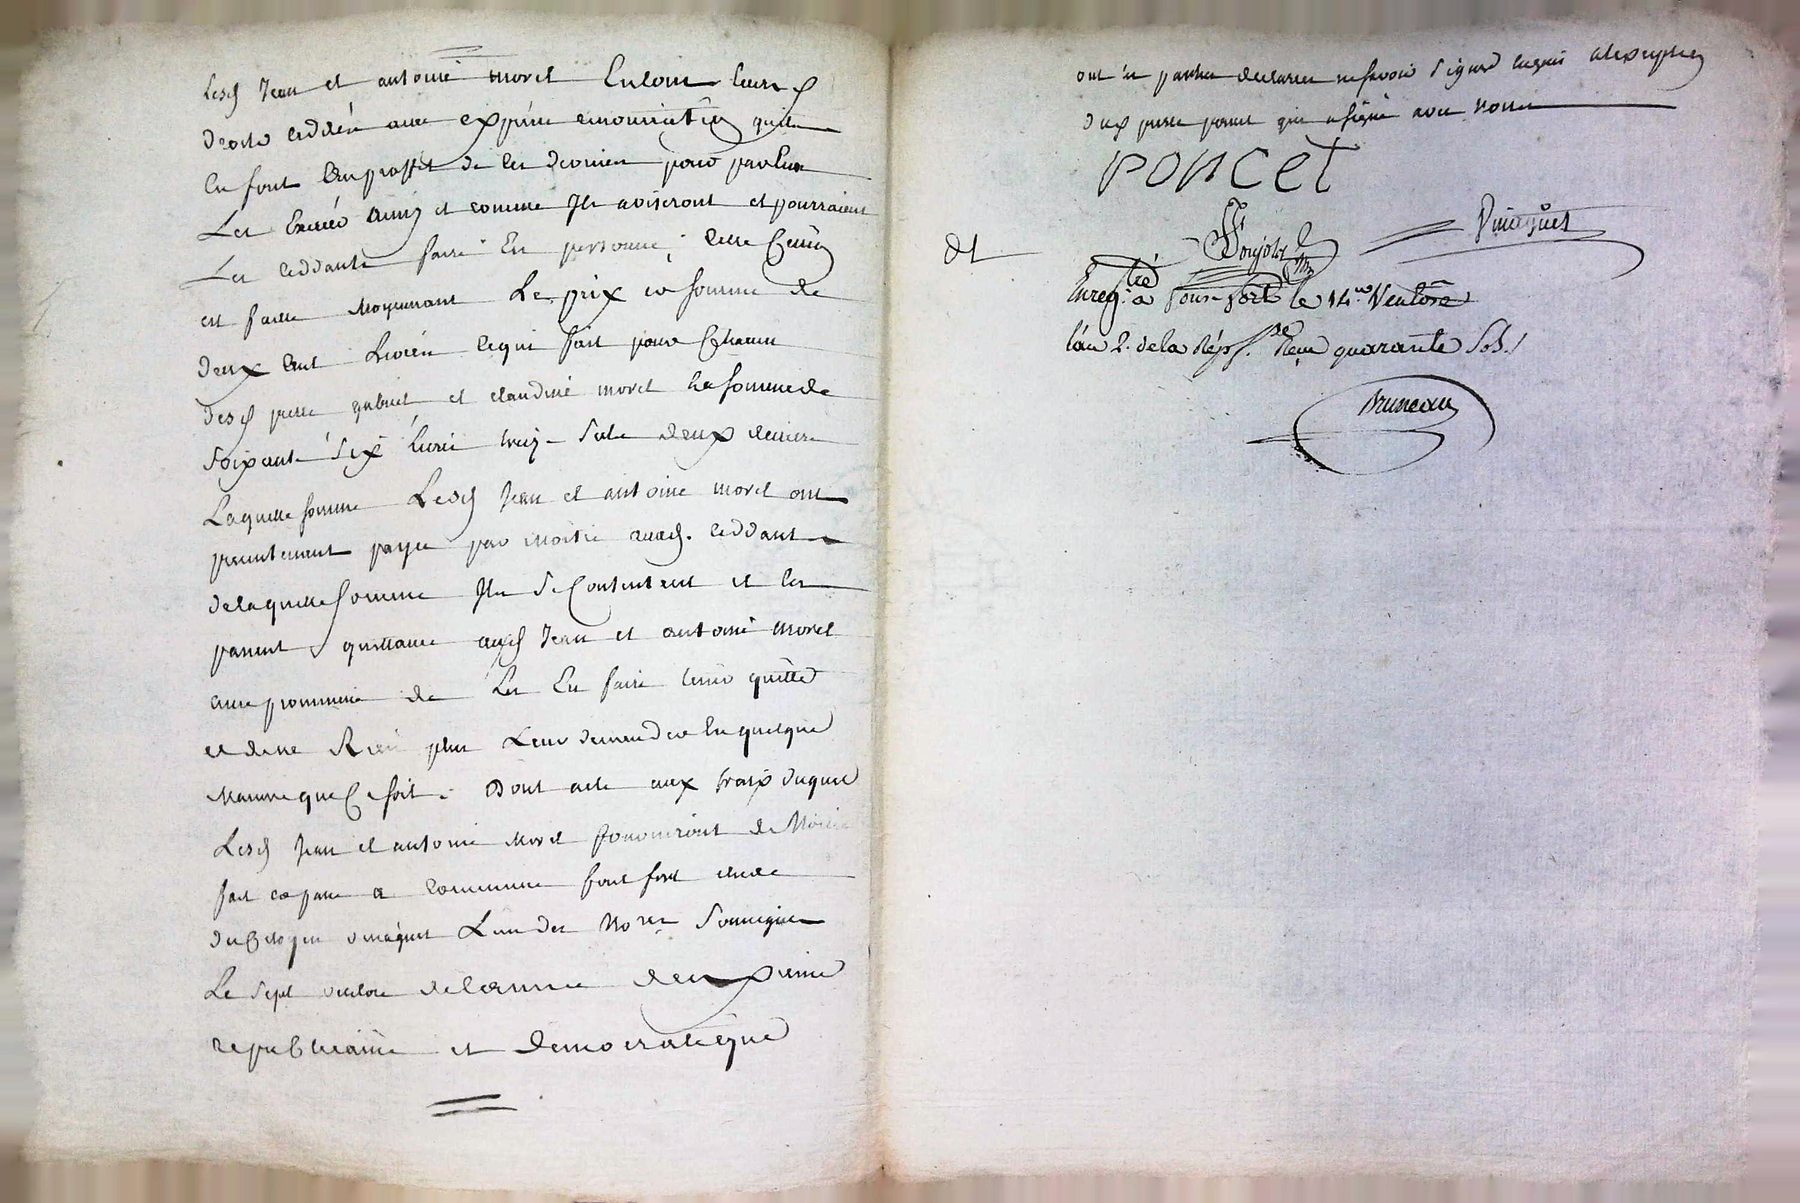 Lesd Jean et antoine morel En loin leurs
droits ceddés avec expresse renonciation quils
En font Au proffit de ces derniers pour par Eux
Les Exercer Ainsy et comme Ils aviseront et pourraient
Les ceddants faire En personne ; Cette Cession
est faitte moyennant Le prix et somme de
deux Cent Livres ce qui fait pour Chacun
desd pierre gabriel et claudine morel La somme de
soixante six livres treize sols deux deniers
Laquelle somme Lesd Jean et antoine morel ont
presentement payée par moitie auxd. ceddants
de laquelle somme Ils se Contentent et les
passent quittance auxd Jean et antoine morel
avec promesse de Les En faire tenir quitte
et de ne Rien plus Leur demander En quelque
maniere que Ce soit . Dont acte aux fraix duquel
Lesd Jean et antoine morel fourniront de Moitié
fait et passé a commune fonfort etude
du Citoyen vinaguet L'un des Nores soussignés
Le sept ventose de l'année deuxieme
republicaine et democratique
ont les parties declarées ne savoir signer enquis a l'exception
du pierre poncet qui a signé avec Nous
poncet
Vinaguet
et
Enreg.tré à fonfort le 14.me Ventôse
l'an 2. de la Rép.f. Reçu quarante Sols.
Bruneau